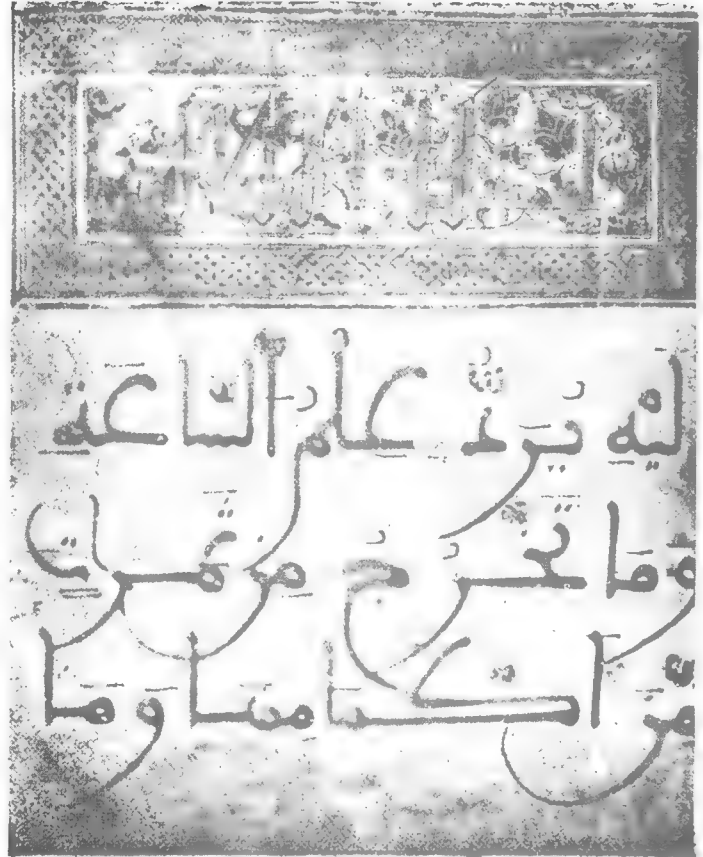 لَيْهِ يُرَدُّ عِلْمُ السَّاعَةِ
وَمَا تَخْرُجُ مِنْ ثَمَرَتٍ
مِّنْ أَكْمَامِهَا وَمَا